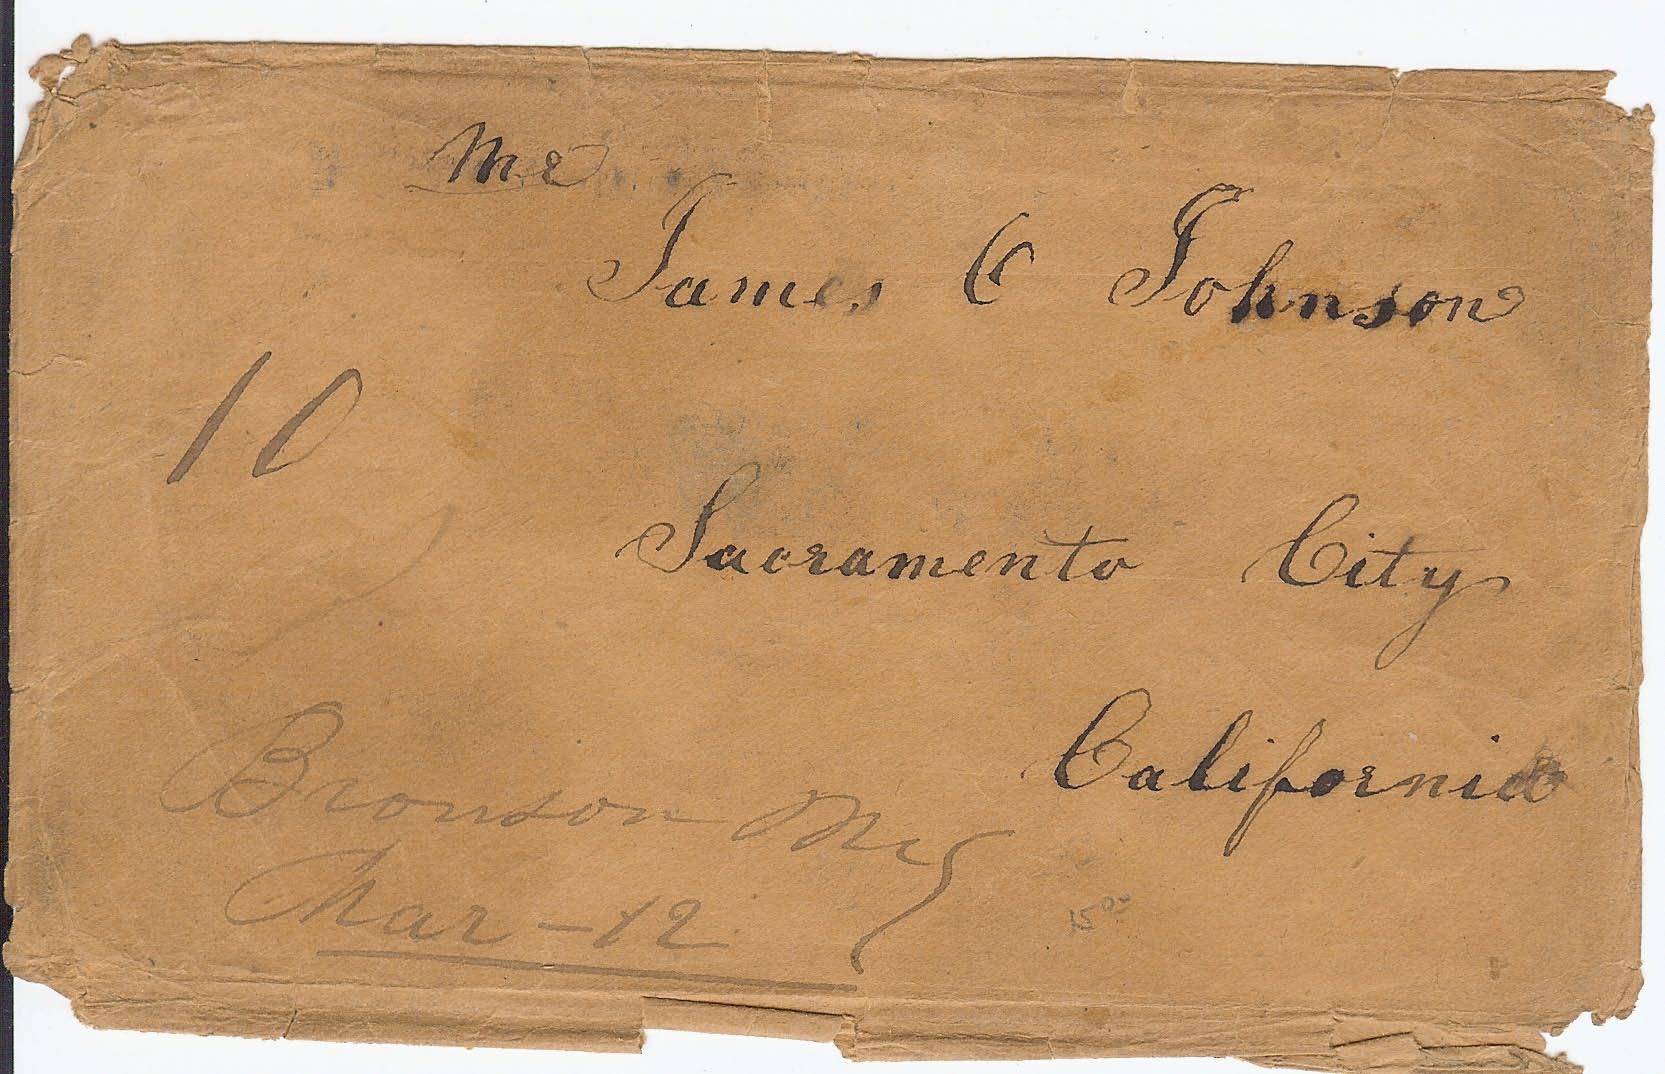 Mr
James C Johnson
10
Sacramento City
California
Bronson
Mar - 12